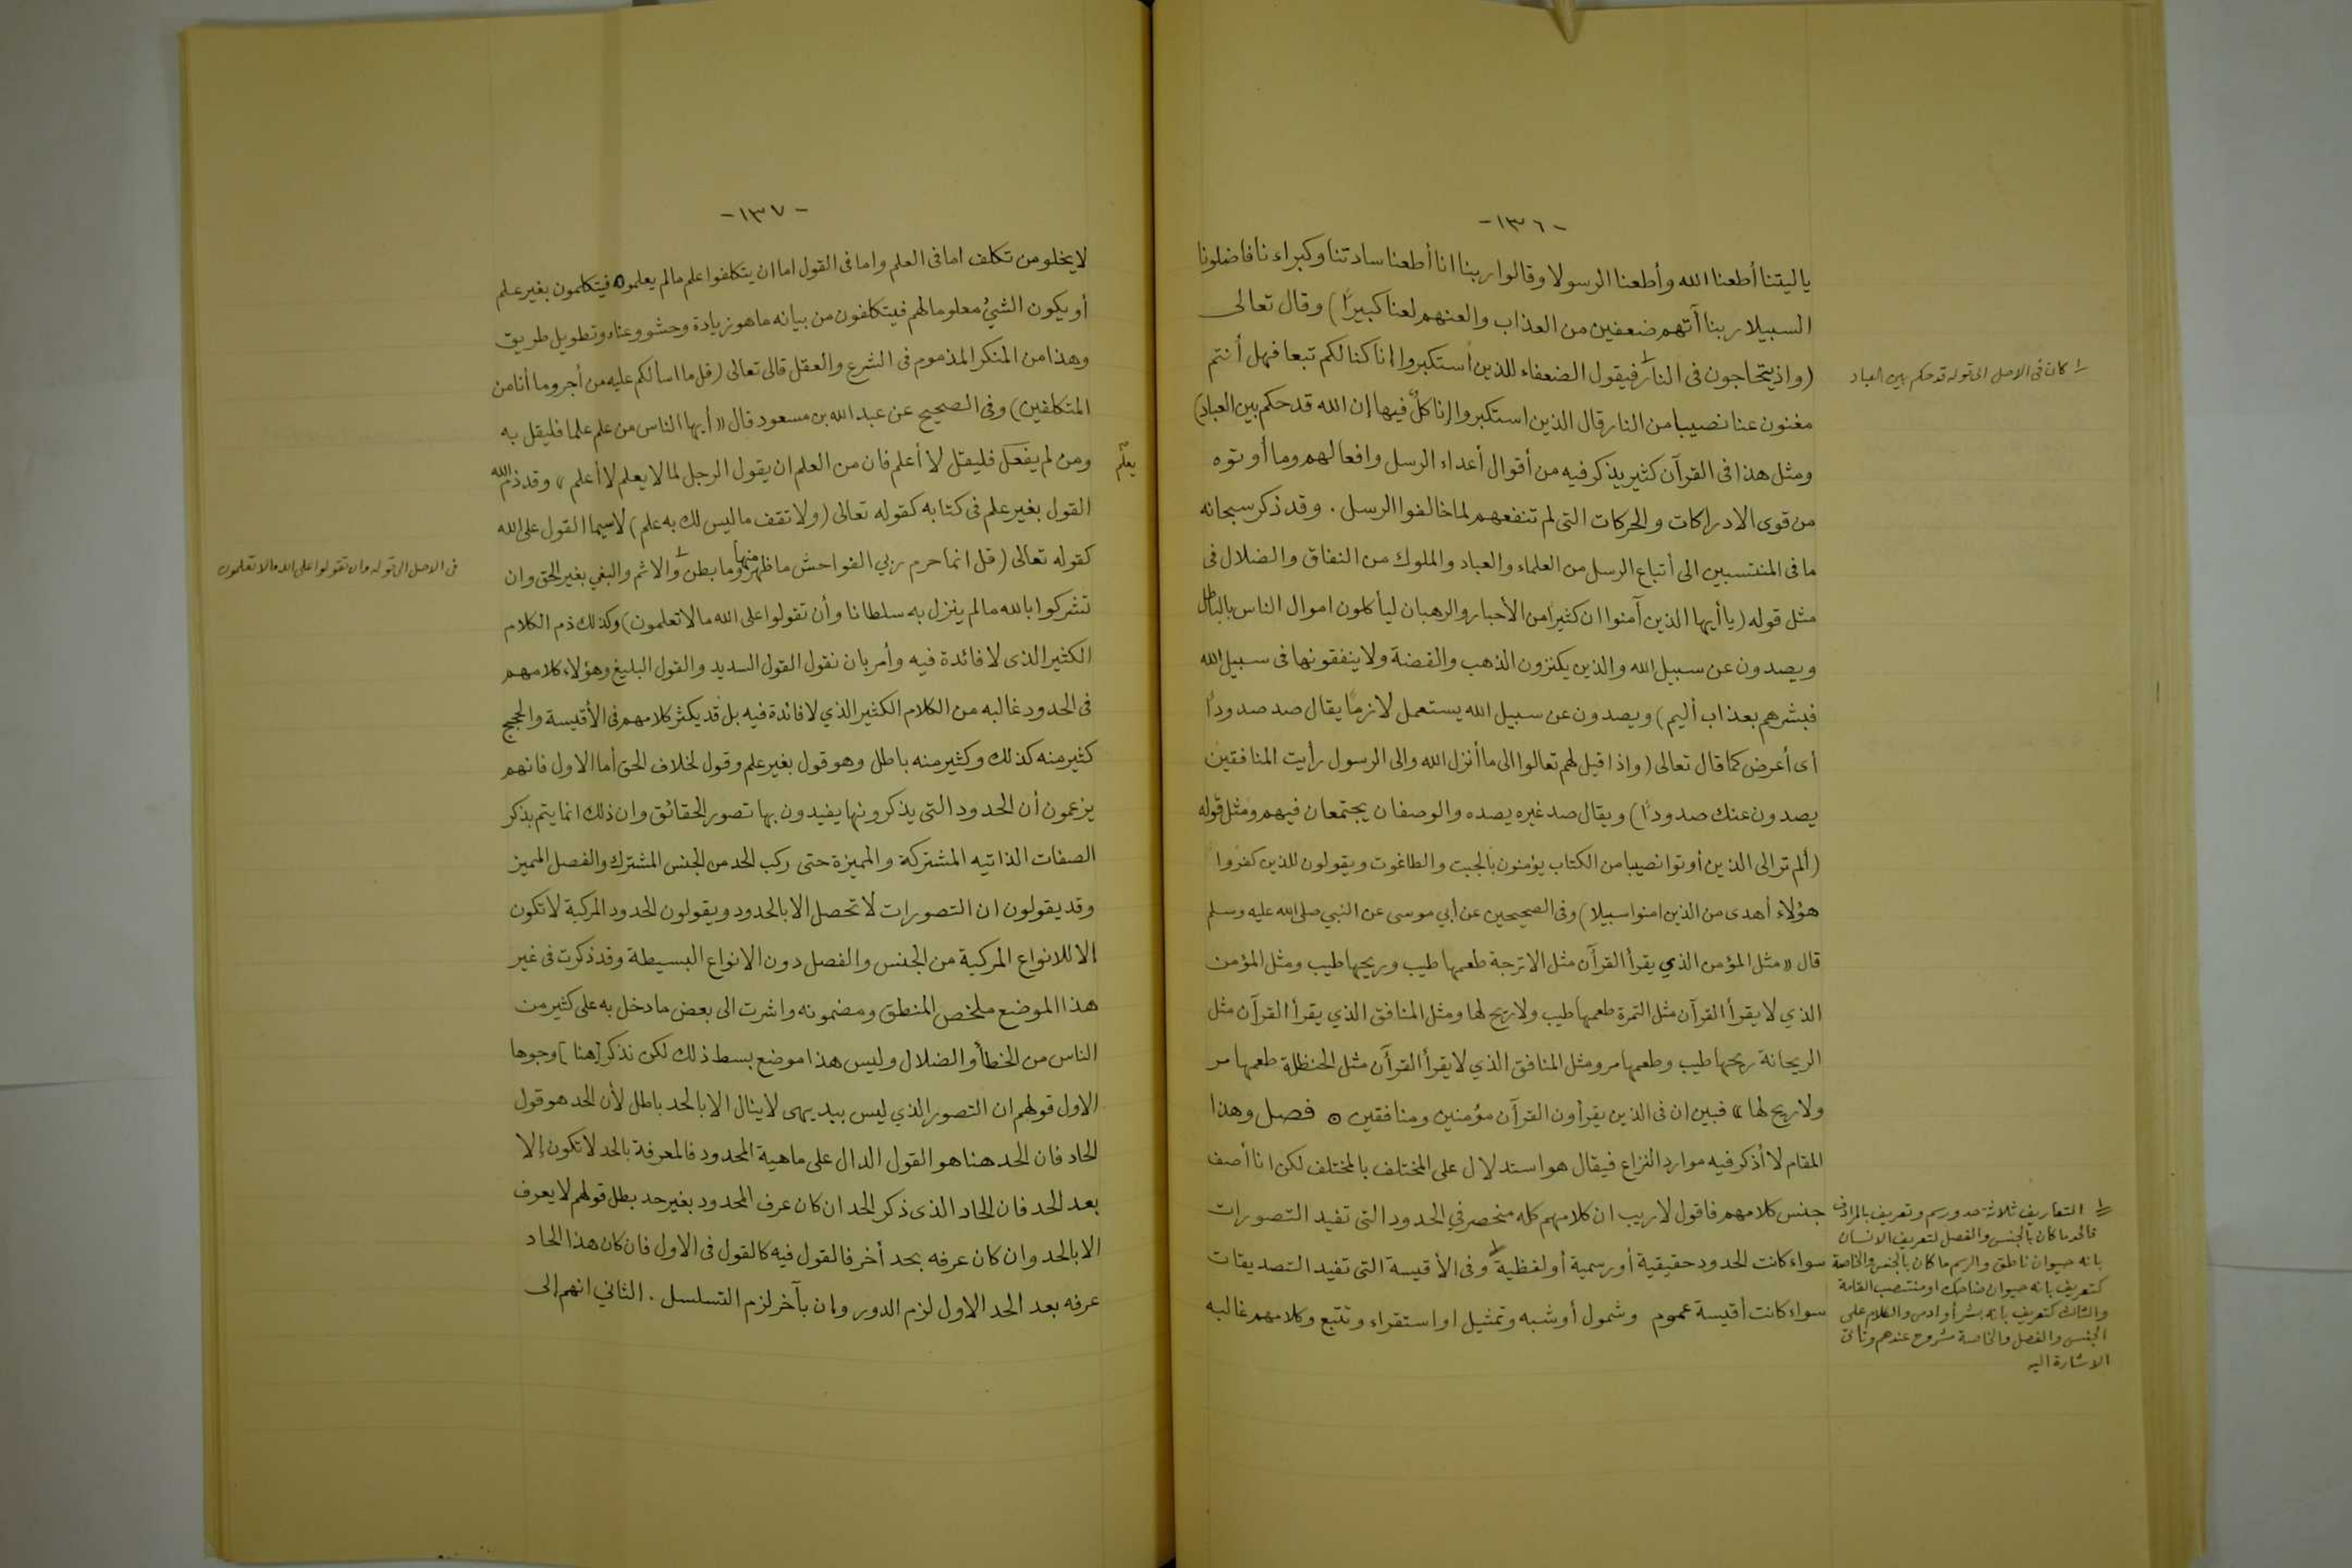 -١٣٦-
ياليتنا أطعنا الله وأطعنا الرسولا وقالوا ربنا انا أطعنا سادتنا وكبراءنا فاضلونا
السبيلا ربنا آتهم ضعفين من العذاب والعنهم لعنا كبيرًا) وقال تعالى
(واذ يتحاجون فى النار فيقول الضعفاء للذين استكبروا انا كنا لكم تبعا فهل أنتم
مغنون عنا نصيبا من النار قال الذين استكبروا إنا كلٌ فيها إن الله قد حكم بين العباد)
ومثل هذا فى القرآن كثير يذكر فيه من أقوال أعداء الرسل وافعالهم وما أوتوه
من قوى الادراكات والحركات التى لم تنفعهم لما خالفوا الرسل . وقد ذكر سبحانه
ما فى المنتسبين الى أتباع الرسل من العلماء والعباد والملوك من النفاق والضلال فى
مثل قوله (يا أيها الذين آمنوا ان كثيرًا من الأحبار والرهبان ليأكلون اموال الناس بالباطل
ويصدون عن سبيل الله والذين يكنزون الذهب والفضة ولا ينفقونها فى سبيل الله
فبشرهم بعذاب أليم) ويصدون عن سبيل الله يستعمل لازمًا يقال صد صدودًا
أى أعرض كما قال تعالى (واذا قيل لهم تعالوا الى ما أنزل الله والى الرسول رأيت المنافقين
يصدون عنك صدودًا) ويقال صد غيره يصده والوصفان يجتمعان فيهم ومثل قوله
(ألم تر الى الذين أوتوا نصيبا من الكتاب يؤمنون بالجبت والطاغوت ويقولون للذين كفروا
هؤلاء أهدى من الذين امنوا سبيلا) وفى الصحيحين عن أبي موسى عن النبي صلى الله عليه وسلم
قال «مثل المؤمن الذي يقرأ القرآن مثل الاترجة طعمها طيب وريحها طيب ومثل المؤمن
الذي لا يقرأ القرآن مثل التمرة طعمها طيب ولا ريح لها ومثل المنافق الذي يقرأ القرآن مثل
الريحانة ريحها طيب وطعمها مر ومثل المنافق الذي لا يقرأ القرآن مثل الحنظلة طعمها مر
ولا ريح لها» فبين ان فى الذين يقرأون القرآن مؤمنين ومنافقين ⊙ فصل وهذا
المقام لا أذكر فيه موارد النزاع فيقال هو استدلال على المختلف بالمختلف لكن انا أصف
جنس كلامهم فاقول لا ريب ان كلامهم كله منحصر في الحدود التى تفيد التصورات
سواء كانت الحدود حقيقية أو رسمية أو لفظية وفى الأقيسة التى تفيد التصديقات
سواء كانت أقيسة عموم وشمول أو شبه وتمثيل او استقراء وتتبع وكلامهم غالبه
١ كان فى الاصل الى قوله قد حكم بين العباد
١ التعاريف ثلاثة حد ورسم وتعريف بالمرادف
فالحد ما كان بالجنس والفصل لتعريف الانسان
بانه حيوان ناطق والرسم ما كان بالجنس والخاصة
كتعريف بانه حيوان ضاحك او منتصب القامة
والثالث كتعريف بانه بشر أو ادمى والكلام على
الجنس والفصل والخاصة مشروح عندهم وتأتى
الاشارة اليه
-١٣٧-
لا يخلو من تكلف اما فى العلم واما فى القول اما ان يتكلفوا علم ما لم يعلموه فيتكلمون بغير علم
أو يكون الشئ معلوما لهم فيتكلفون من بيانه ما هو زيادة وحشو وعناء وتطويل طريق
وهذا من المنكر المذموم فى الشرع والعقل قال تعالى (قل ما اسألكم عليه من أجر وما أنا من
المتكلفين) وفى الصحيح عن عبد الله بن مسعود قال «أيها الناس من علم علما فليقل به
ومن لم يفعل فليقل لا أعلم فان من العلم ان يقول الرجل لما لا يعلم لا أعلم» وقد ذم الله
القول بغير علم فى كتابه كقوله تعالى (ولا تقف ما ليس لك به علم) لا سيما القول على الله
كقوله تعالى (قل انما حرم ربي الفواحش ما ظهر منها وما بطن والاثم والبغي بغير الحق وان
تشركوا بالله ما لم ينزل به سلطانا وأن تقولوا على الله ما لا تعلمون) وكذلك ذم الكلام
الكثير الذى لا فائدة فيه وأمر بان نقول القول السديد والقول البليغ وهؤلاء كلامهم
فى الحدود غالبه من الكلام الكثير الذي لا فائدة فيه بل قد يكثر كلامهم فى الأقيسة والحجج
كثير منه كذلك وكثير منه باطل وهو قول بغير علم وقول لخلاف الحق أما الاول فانهم
يزعمون أن الحدود التى يذكرونها يفيدون بها تصور الحقائق وان ذلك انما يتم بذكر
الصفات الذاتيه المشتركة والمميزة حتى ركب الحد من الجنس المشترك والفصل المميز
وقد يقولون ان التصورات لا تحصل الا بالحدود ويقولون الحدود المركبة لا تكون
الا للانواع المركبة من الجنس والفصل دون الانواع البسيطة وقد ذكرت فى غير
هذا الموضع ملخص المنطق ومضمونه واشرت الى بعض ما دخل به على كثير من
الناس من الخطأ والضلال وليس هذا موضع بسط ذلك لكن نذكر [هنا] وجوها
الاول قولهم ان التصور الذي ليس ببديهى لا ينال الا بالحد باطل لأن الحد هو قول
الحاد فان الحد هنا هو القول الدال على ماهية المحدود فالمعرفة بالحد لا تكون إلا
بعد الحد فان الحاد الذى ذكر الحد ان كان عرف المحدود بغير حد بطل قولهم لا يعرف
الا بالحد وان كان عرفه بحد أخر فالقول فيه كالقول فى الاول فان كان هذا الحاد
عرفه بعد الحد الاول لزم الدور وإن بآخر لزم التسلسل . الثاني انهم الى
يعلم
فى الاصل الى قوله وان تقولوا على الله ما لا تعلمون